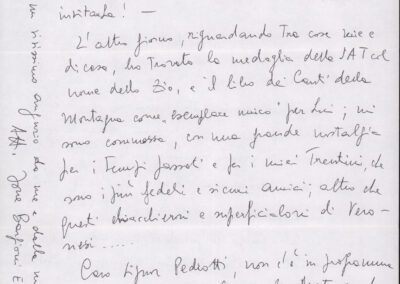 invitarla! —
L'altro giorno, riguardando tra cose mie e
di casa, ho trovato la medaglia della SAT col
nome dello Zio, e il libro dei Canti della
Montagna come "esemplare unico" per Lui; mi
sono commossa, con una grande nostalgia
per i tempi passati e per i miei Trentini, che
sono i più fedeli e sicuri amici; altro che
questi chiaccheroni e superficialoni di Vero-
nesi.....
Caro Signor Pedrotti, non c'è in programma
un vivissimo augurio da me e dalla
Aff.